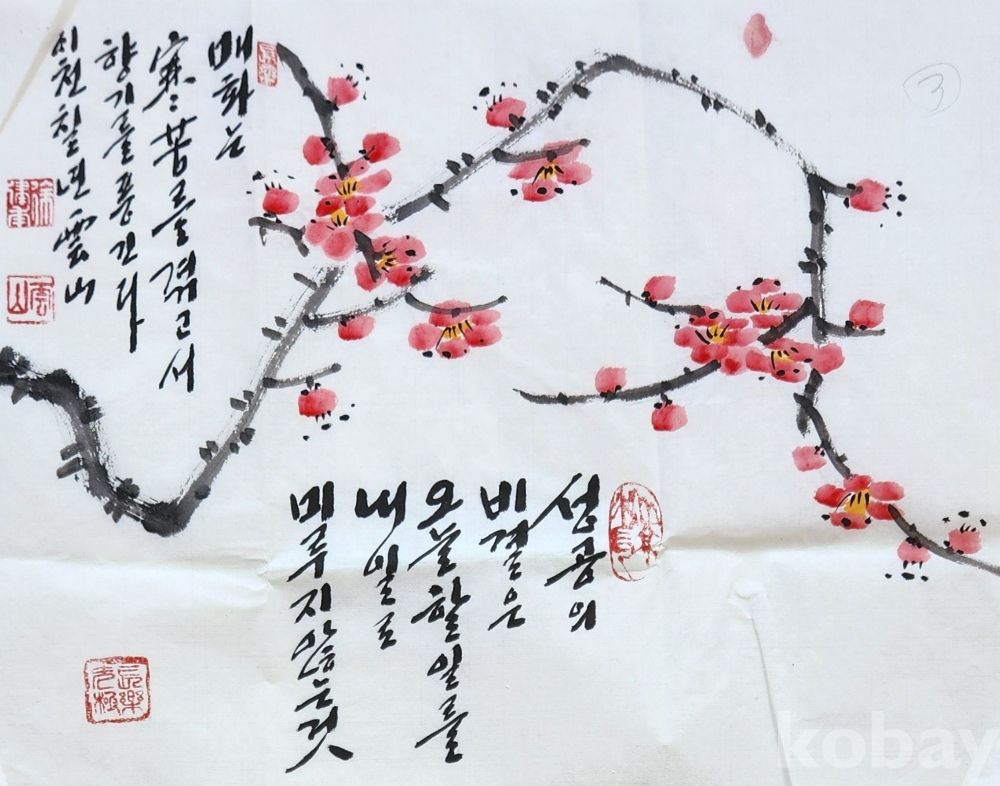 매화는
寒苦를 겪고서
향기를 풍긴다
이천칠년 雲山
성공의
비결은
오늘 할 일을
내일로
미루지 않는 것
長樂
雲山
長樂
3
kobay